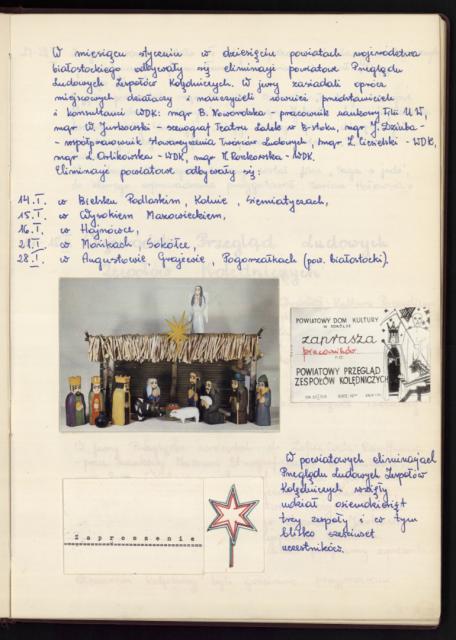 W miesiącu styczniu w dziesięciu powiatach województwa
białostockiego odbywały się eliminacje powiatowe Przeglądu
Ludowych Zespołów Kolędniczych. W jury zasiadali oprócz
miejscowych działaczy i nauczycieli również przedstawiciele
i konsultanci WDK: mgr B. - pracownik naukowy Filii U.W,
mgr W. Jurkowski - scenograf Teatru Lalek w B-stoku, mgr J. Dziuba -
- współpracownik Stowarzyszenia Twórców Ludowych, mgr Z. Ciesielski - WDK,
mgr L. Orlikowska - WDK, mgr - WDK.
Eliminacje powiatowe odbywały się:
14.I. w Bielsku Podlaskim, Kolnie, Siemiatyczach,
15.I. w Wysokiem Mazowieckiem,
16.I. w Hajnówce,
21.I. w Mońkach Sokółce,
28.I. w Augustowie, Grajewie, Pogorzałkach (pow. białostocki).
POWIATOWY DOM KULTURY
W SOKÓŁCE
zaprasza
pracowników
POWIATOWY PRZEGLĄD
ZESPOŁÓW KOLĘDNICZYCH
W powiatowych eliminacjach
Przeglądu Ludowych Zespołów
Kolędniczych wzięły
udział osiemdziesiąt
trzy zespoły i w tym
blisko sześciuset
uczestników.
Zaproszenie